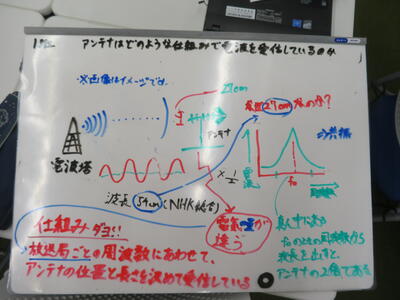 アンテナはどのような仕組みで電波を受信しているのか
※画像はイメージです。
27cm
なぜ27cmなのか?
アンテナ
⇒共振
電波塔
電流
f₀
波長 54cm (NHK総合)
×1/2
仕組みダヨ!!
放送局ごとの周波数にあわせて、
アンテナの位置と長さを決めて受信している
電気の量が
違う
f₀のときの周波数から
波長を出すと、
アンテナの2倍である